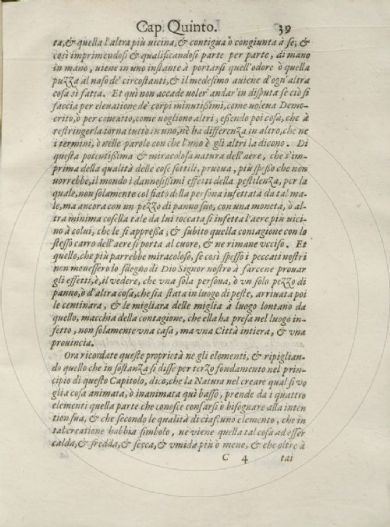 Cap. Quinto. 39
ta, & quella l'altra più uicina, & contigua ò congiunta à se; &
così imprimendosi & qualificandosi parte per parte, di mano
in mano, uiene in uno instante à portarsi quell'odore ò quella
puzza al naso de' circostanti, & il medesimo auiene d'ogn'altra
cosa si fatta. Et quì non accade uoler andar in disputa se ciò si
faccia per eleuatione de' corpi minutissimi, come uoleua Demo-
crito, ò per come uogliono altri, essendo poi cosa, che à
restringerla torna tutto in uno, nè ha differenza in altro, che ne
i termini, ò nelle parole con che l'uno & gli altri la dicono. Di
questa potentissima & miracolosa natura dell'aere, che s'im-
prima della qualità delle cose sottili, pruoua, più spesso che non
uorrebbe, il mondo i dannosissimi effetti della pestilenza, per la
quale, non solamente col fiato della persona infettata da tal ma-
le, ma ancora con un pezzo di panno suo, con una moneta, ò al-
tra minima cosella tale da lui toccata si infetta l'aere più uici-
no à colui, che le si appressa, & subito quella contagione con lo
stesso carro dell'aere si porta al cuore, & ne rimane ucciso. Et
quello, che più parrebbe miracoloso, se così spesso i peccati nostri
non mouessero lo sdegno di Dio Signor nostro à farcene prouar
gli effetti, è, il uedere, che vna sola persona, ò un solo pezzo di
panno, ò d'altra cosa, che sia stata in luogo di peste, arriuata poi
le centinara, & le migliara delle miglia à luogo lontano da
quello, macchia della contagione, che ella ha presa nel luogo in-
ferto, non solamente vna casa, ma vna Città intiera, & vna
prouincia.
Ora ricordate queste proprietà ne gli elementi, & ripiglian-
do quello che in sostanza si disse per terzo fondamento nel prin-
cipio di questo Capitolo, dico, che la Natura nel creare qual si vo
glia cosa animata, ò inanimata quì basso, prende da i quattro
elementi quella parte che conosce confarsi ò bisognare alla inten
tion sua, & che secondo le qualità di ciascuno elemento, che in
tal creatione habbia simbolo, ne viene quella tal cosa ad esser
calda, & fredda, & secca, & umida più ò meno, & che oltre à
C 4 tai